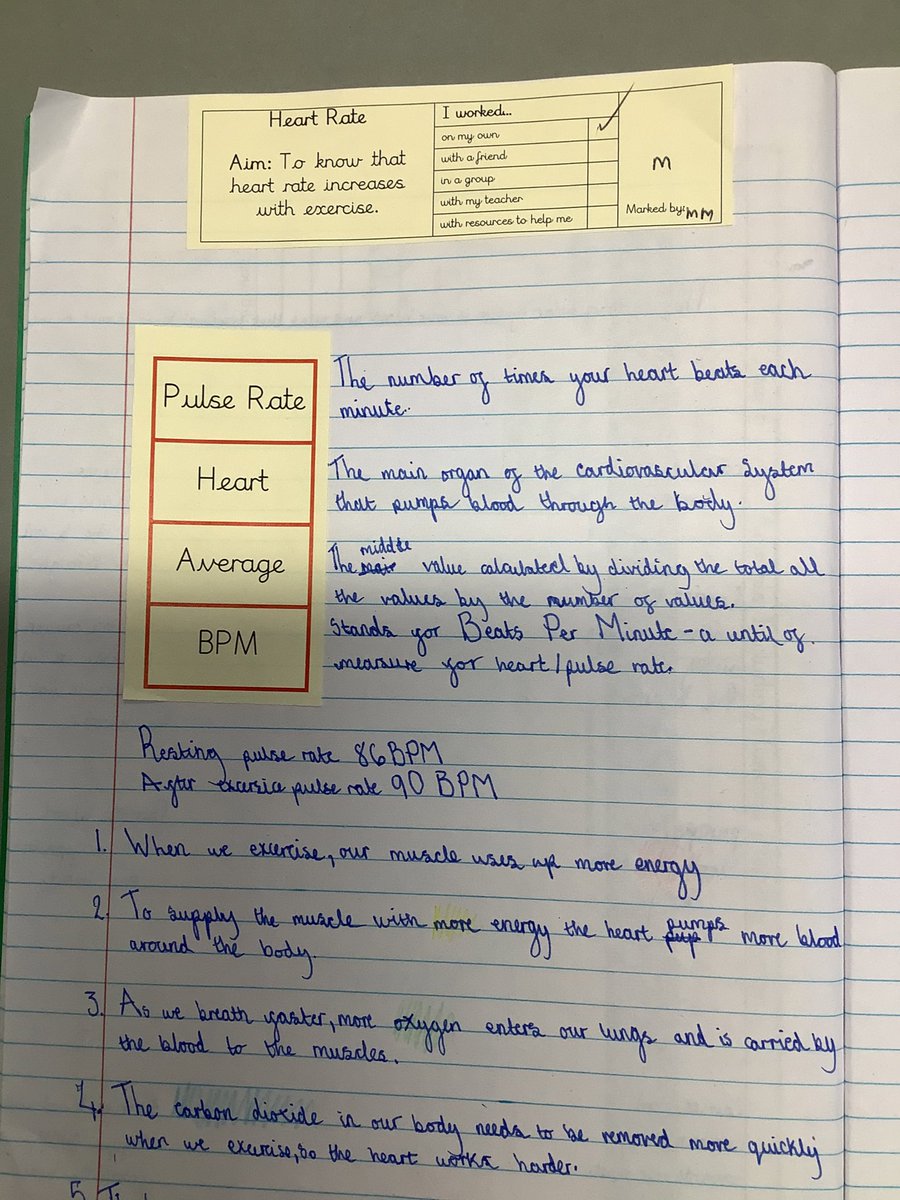 Heart Rate
Aim: To know that
heart rate increases
with exercise.
I worked...
on my own ✓
with a friend
in a group
with my teacher
with resources to help me
M
Marked by: MM
Pulse Rate
The number of times your heart beats each
minute.
Heart
The main organ of the cardiovascular system
that pumps blood through the body.
Average
middle
The value calculated by dividing the total all
the values by the number of values.
BPM
Stands for Beats Per Minute - a until of
measure for heart/pulse rate.
Resting pulse rate 86 BPM
After pulse rate 90 BPM
1. When we exercise, our muscle uses up more energy
2. To supply the muscle with more energy the heart pumps more blood
around the body.
3. As we breath faster, more oxygen enters our lungs and is carried by
the blood to the muscles.
4. The carbon dioxide in our body needs to be removed more quickly
when we exercise, so the heart works harder.
5.